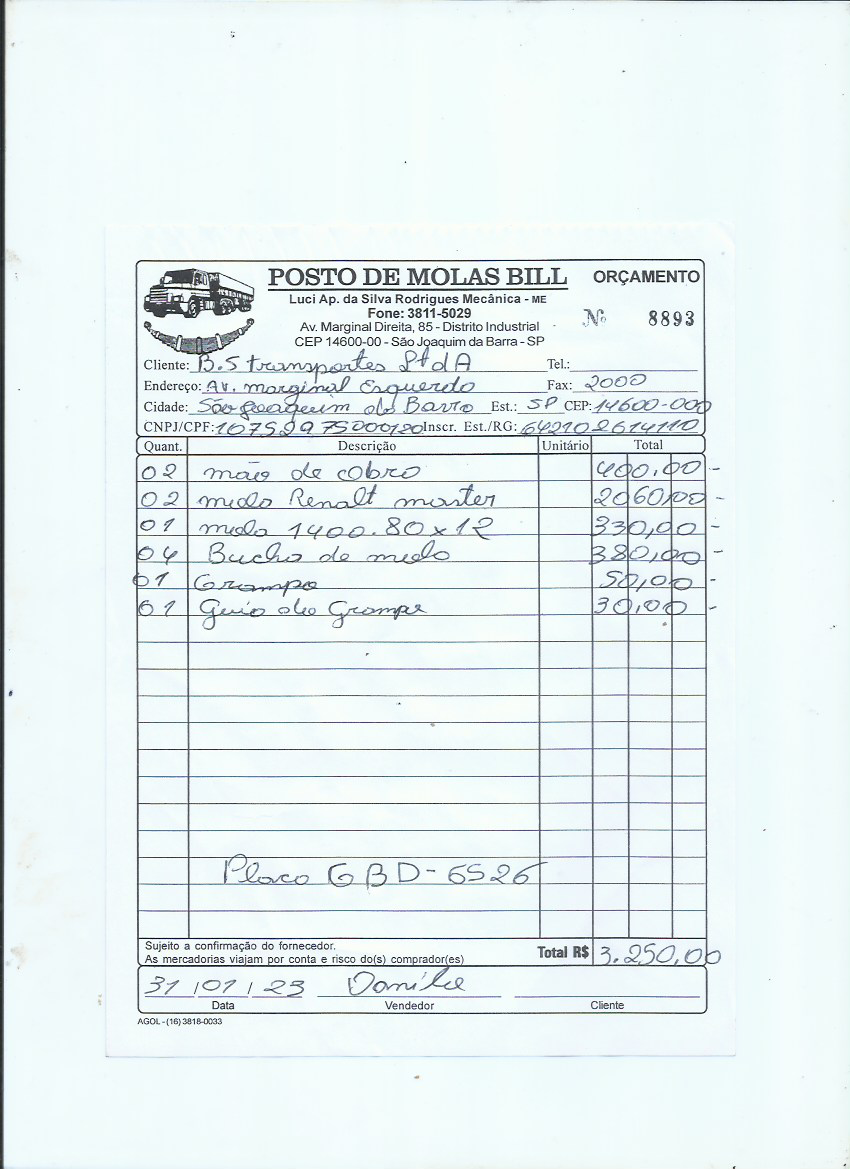 POSTO DE MOLAS BILL ORÇAMENTO
Luci Ap. da Silva Rodrigues Mecânica - ME
Fone: 3811-5029 Nº 8893
Av. Marginal Direita, 85 - Distrito Industrial
CEP 14600-00 - São Joaquim da Barra - SP
Cliente: B.S transportes LtdA Tel.:
Endereço: Av. marginal Esquerda Fax: 2000
Cidade: São Joaquim da Barra Est.: SP CEP: 14600-000
CNPJ/CPF: Inscr. Est./RG: 642102614110
Quant. Descrição Unitário Total
02 mão de obra 400,00 -
02 mola Renalt master 2060,00 -
01 mola 1400.80x12 330,00 -
04 Bucha de mola 380,00 -
01 Grampo 50,00 -
01 Guia de Grampo 30,00 -
Placa GBD-6526
Sujeito a confirmação do fornecedor.
As mercadorias viajam por conta e risco do(s) comprador(es) Total R$ 3.250,00
31 / 01 / 23
Data Vendedor Cliente
AGOL - (16) 3818-0033